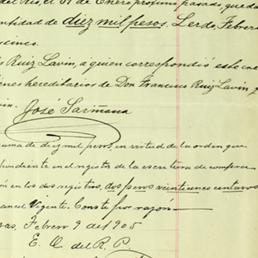 el 31 de Enero próximo pasado, queda
entidad de diez mil pesos. Lerdo, Febrero
cinco.
Ruiz Lavin, a quien correspondió este cre
ienes hereditarios de Don Francisco Ruiz Lavin y
José Sarmana
uma de diez mil pesos, en virtud de la orden que
pondiente en el registro de la escritura de compra
en los dos registros, dos pesos veinticinco centavos
ancel Vigente. Conste por razón.
as, Febrero 9 de 1905
E. O. del R. P.